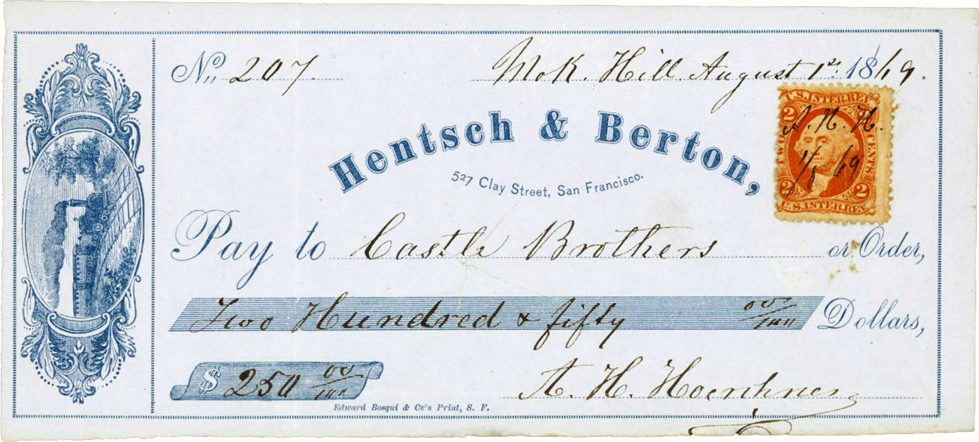 No. 207. Mok. Hill. August 1st. 1869.
Hentsch & Berton,
527 Clay Street, San Francisco.
U.S. INTER. REV.
2 2
TWO CENTS
A. H. H.
69
2 2
U.S. INTER. REV.
Pay to Castle Brothers or Order,
Two Hundred & fifty 00/100 Dollars,
$ 250 00/100
A. H.
Edward Bosqui & Co's Print, S. F.